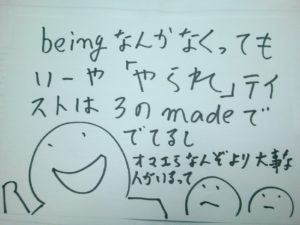 beingなんかなくっても
いーや「やられ」テイ
ストは3のmadeで
でてるし
オマエらなんぞより大事な
人がいるって